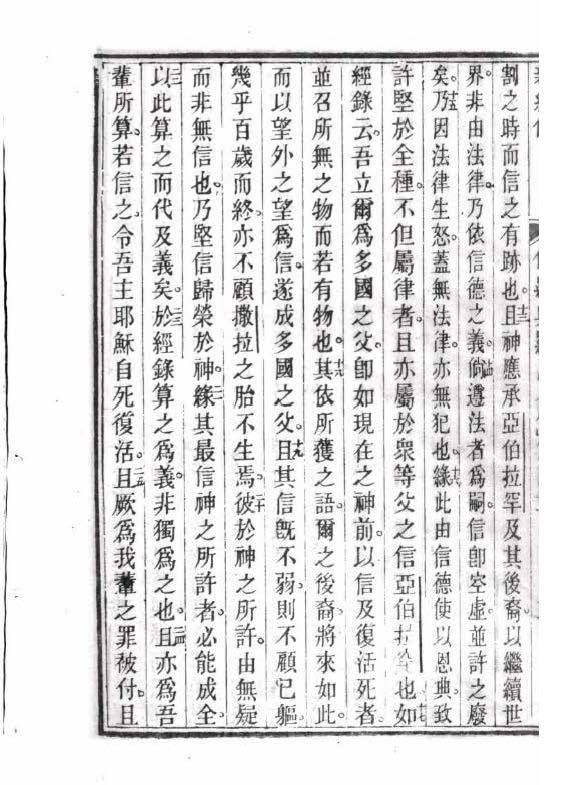 割之時而信之有跡也。十三且神應承亞伯拉罕及其後裔以繼續世
界。非由法律。乃依信德之義。十四倘遵法者為嗣。信即空虛。並許之廢
矣。十五乃因法律生怒。蓋無法律。亦無犯也。十六緣此由信德使以恩典。致
許堅於全種。不但屬律者。且亦屬於眾等父之信亞伯拉罕也。十七如
經錄云。吾立爾為多國之父。即如現在之神前。以信及復活死者。
並召所無之物而若有物也。十八其依所獲之語。爾之後裔將來如此。
而以望外之望為信。遂成多國之父。十九且其信既不弱。則不顧已軀
幾乎百歲而終。亦不顧撒拉之胎不生焉。二十彼於神之所許。由無疑
而非無信也。乃堅信歸榮於神。二一緣其最信神之所許者。必能成全。
二二以此算之而代及義矣。二三於經錄算之為義。非獨為之也。二四且亦為吾
輩所算。若信之。令吾主耶穌自死復活。二五且厥為我輩之罪被付。且